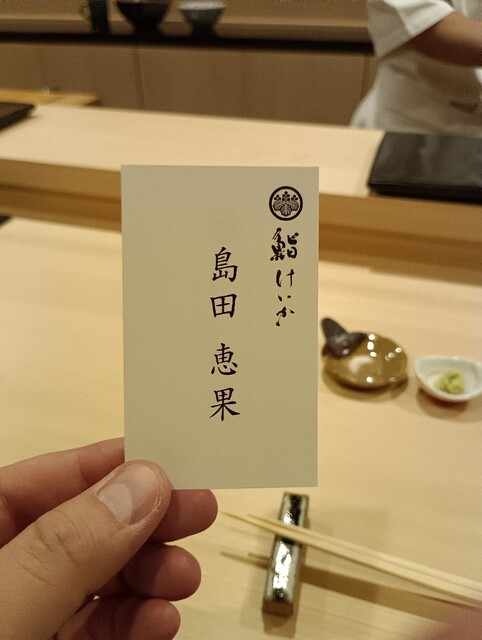 鮨 けいか
島田 恵果